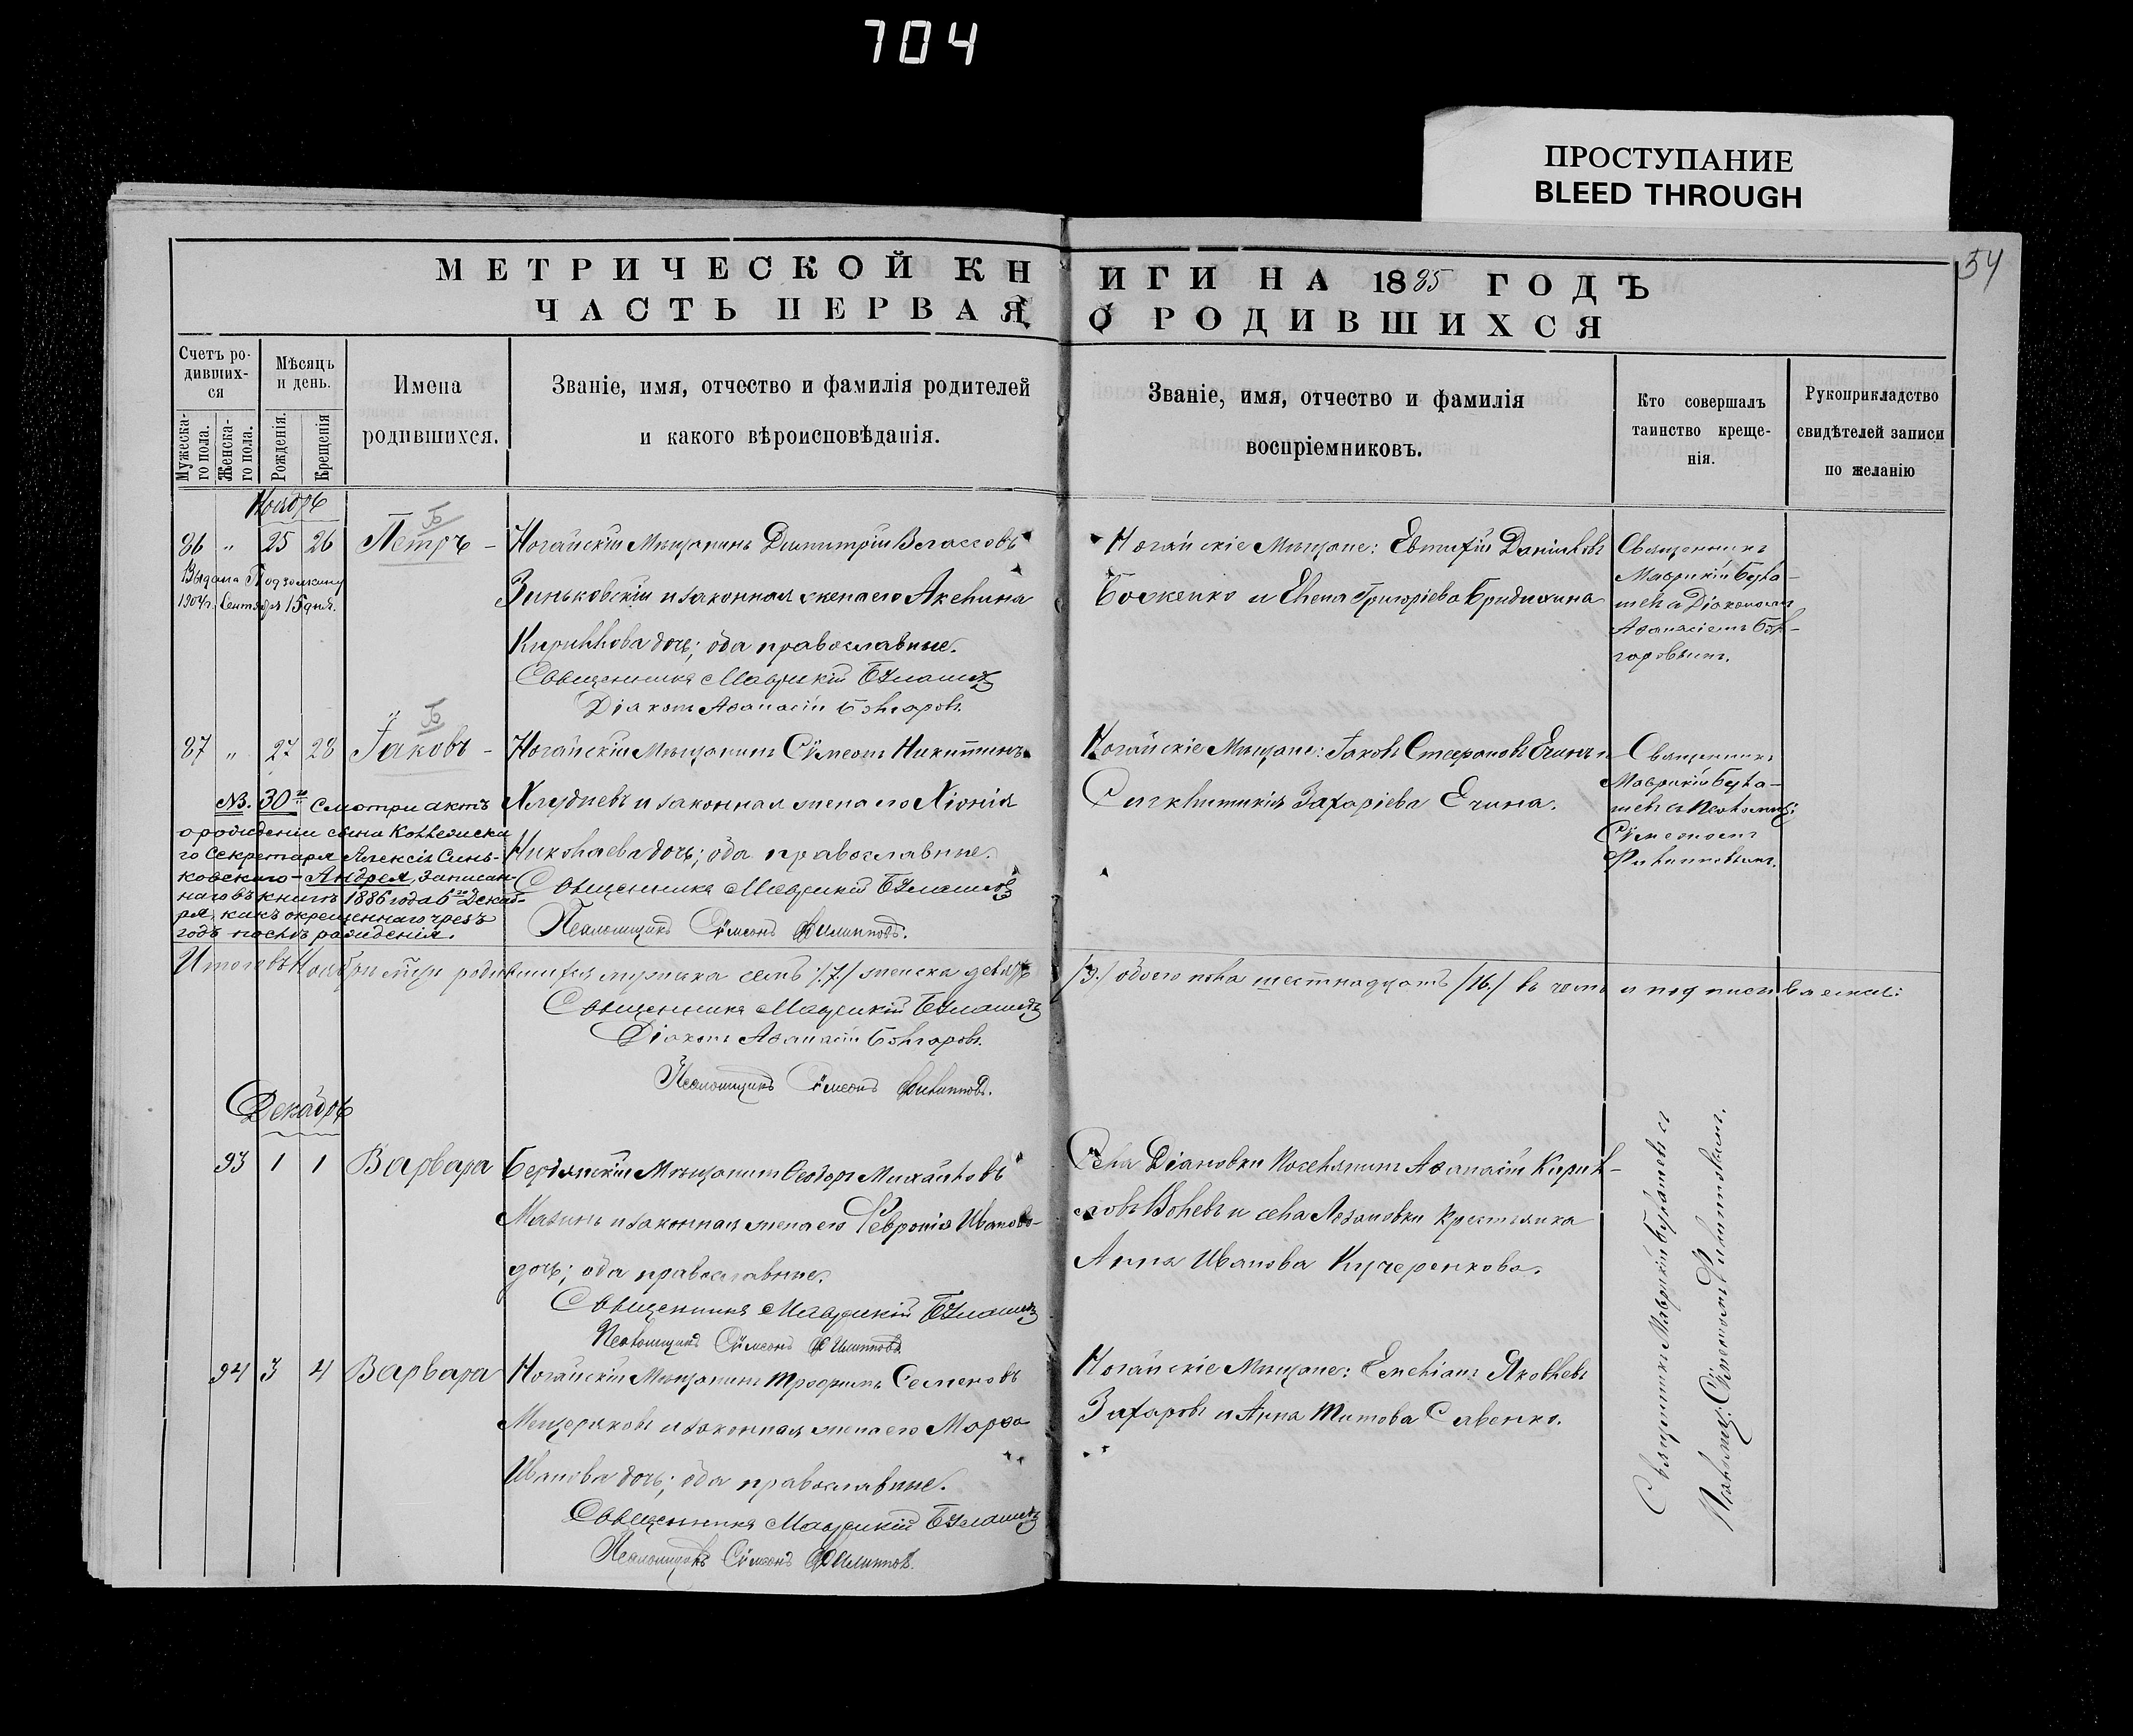 704
ПРОСТУПАНИЕ
BLEED THROUGH
54
МЕТРИЧЕСКОЙ КНИГИ НА 1885 ГОДЪ
ЧАСТЬ ПЕРВАЯ О РОДИВШИХСЯ
Счетъ ро-
дивших-
ся
Мужеска-
го пола.
Женска-
го пола.
Мѣсяцъ
и день.
Рожденія.
Крещенія
Имена
родившихся.
Званіе, имя, отчество и фамилія родителей
и какого вѣроисповѣданія.
Званіе, имя, отчество и фамилія
воспріемниковъ.
Кто совершалъ
таинство креще-
нія.
Рукоприкладство
свидѣтелей записи
по желанію
Ноябрь
86 " 25 26 Петръ -
Выдана
1904 г. Сентября 15 дня.
Ногайскій Мѣщанинъ Димитрій
Зиньковскій и законная жена его Акелина
Кириллова дочь; оба православные.
Священникъ Маврикій Булашевъ
Діаконъ Аѳанасій Болгаровъ.
Ногайскіе Мѣщане: Евтифій Даниловъ
Боженко и Елена Григоріева
Священникъ
Маврикій Була-
шевъ съ Діакономъ
Аѳанасіемъ Бол-
гаровымъ.
87 " 27 28 Іаковъ -
Ногайскій Мѣщанинъ Сѵмеонъ Никитинъ
Хлудневъ и законная жена его Хіонія
Николаева дочь; оба православные.
Священникъ Маврикій Булашевъ
Псаломщикъ Сѵмеонъ Филипповъ.
Ногайскіе Мѣщане: Іаковъ Стефановъ Ечинъ и
Сигклитикія Захаріева Ечина.
Священникъ
Маврикій Була-
шевъ съ Псаломщ:
Сѵмеономъ
Филипповымъ.
NB. 30го смотри актъ
о рожденіи сына Коллежска
го Секретаря Алексія Синь-
ковскаго - Андрея, записан-
наго въ книгѣ 1886 года 6го Декаб-
ря, какъ окрещеннаго чрезъ
годъ послѣ рожденія.
Итого въ Ноябрѣ м-цѣ родившихся мужеска семь /7./ женска девять /9./ обоего пола шестнадцать /16./ въ чемъ и подписываемся:
Священникъ Маврикій Булашевъ
Діаконъ Аѳанасій Болгаровъ.
Псаломщикъ Сѵмеонъ Филипповъ.
Декабрь
93 1 1 Варвара
Бердянскій Мѣщанинъ Ѳеодоръ Михайловъ
Мазинъ и законная жена его Февронія Иванова
дочь; оба православные.
Священникъ Маврикій Булашевъ
Псаломщикъ Сѵмеонъ Филипповъ.
Села Діановки Поселянинъ Аѳанасій Кирил-
ловъ Волевъ и села Лозановки крестьянка
Анна Иванова Кучеренкова.
94 3 4 Варвара
Ногайскій Мѣщанинъ Трофимъ Семеновъ
Мещеряковъ и законная жена его Марѳа
Иванова дочь; оба православные.
Священникъ Маврикій Булашевъ
Псаломщикъ Сѵмеонъ Филипповъ.
Ногайскіе Мѣщане: Емеліанъ Яковлевъ
Захаровъ и Анна Титова Савенко.
Священникъ Маврикій Булашевъ съ
Псаломщ: Сѵмеономъ Филипповымъ.